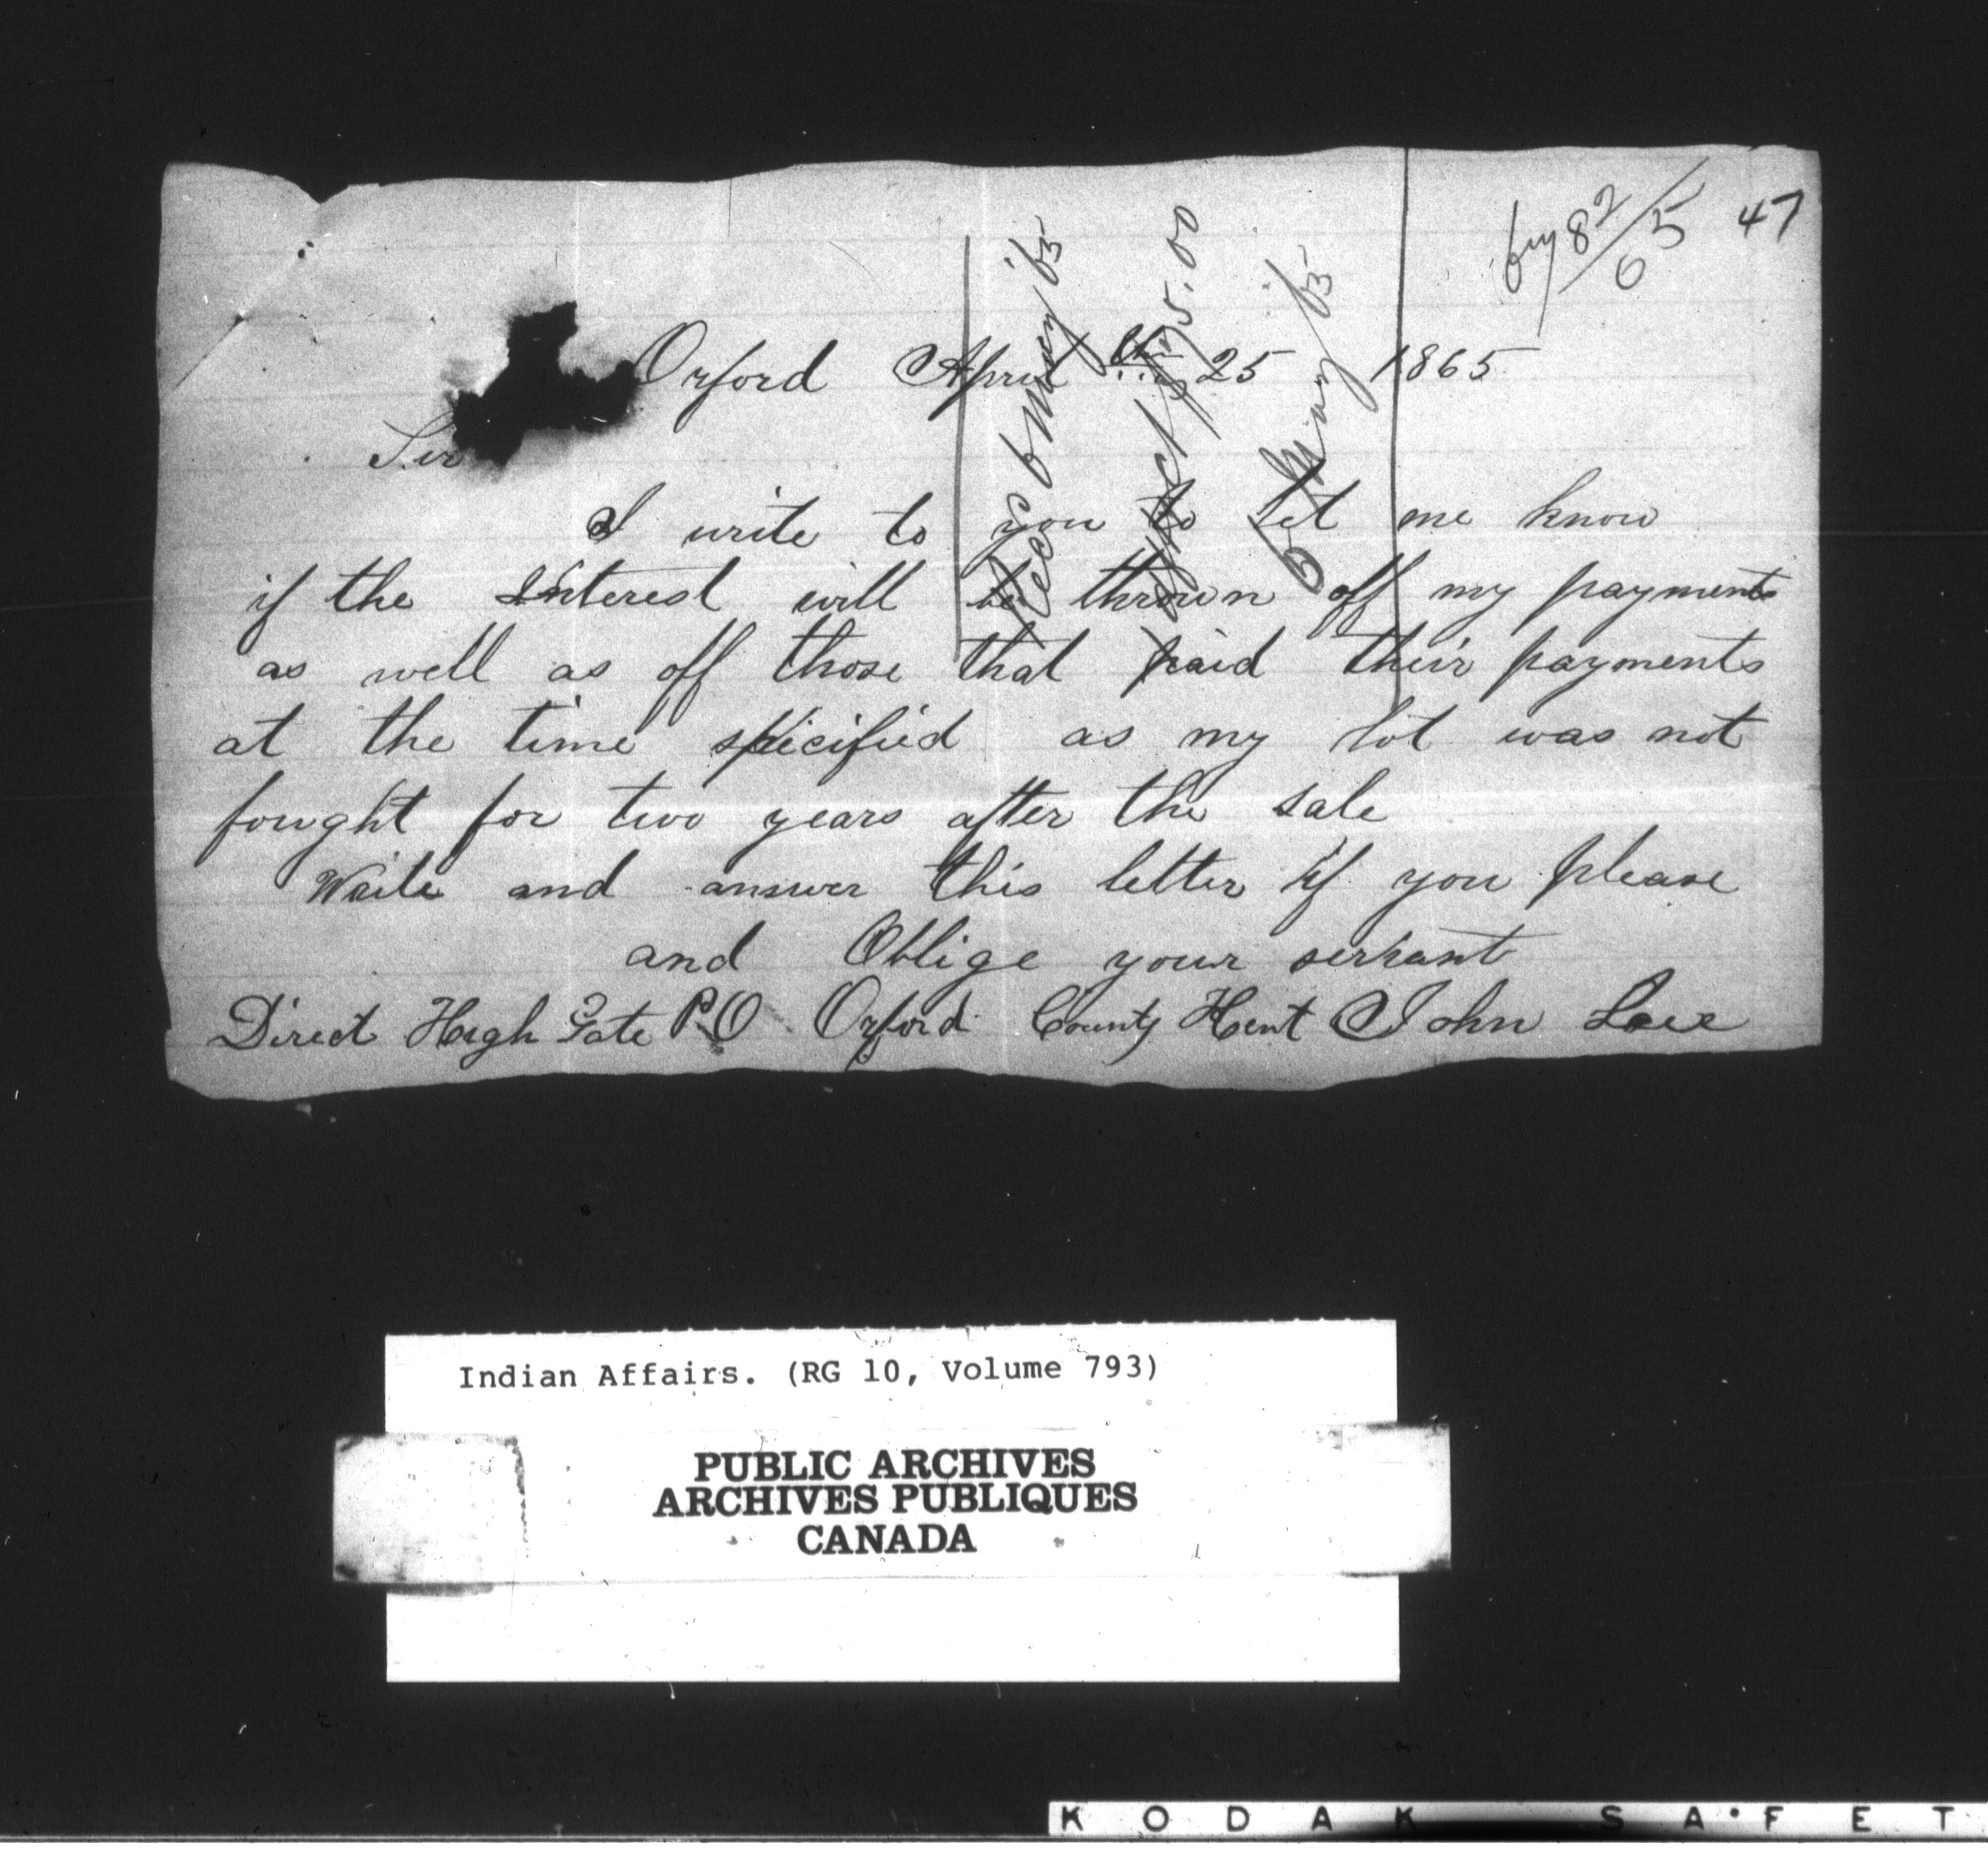 47
82/65
Orford April the 25 1865
Sir
I write to you to let me know
if the Interest will be thrown off my payments
as well as off those that paid their payments
at the time spicified as my lot was not
fought for two years after the sale
Write and answer this letter if you please
and Oblige your servant
Direct High Gate P.O Orford County Kent John Lee
Recd 6 May '65
5.00
6 May '65
Indian Affairs. (RG 10, Volume 793)
PUBLIC ARCHIVES
ARCHIVES PUBLIQUES
CANADA
KODAK SAFET